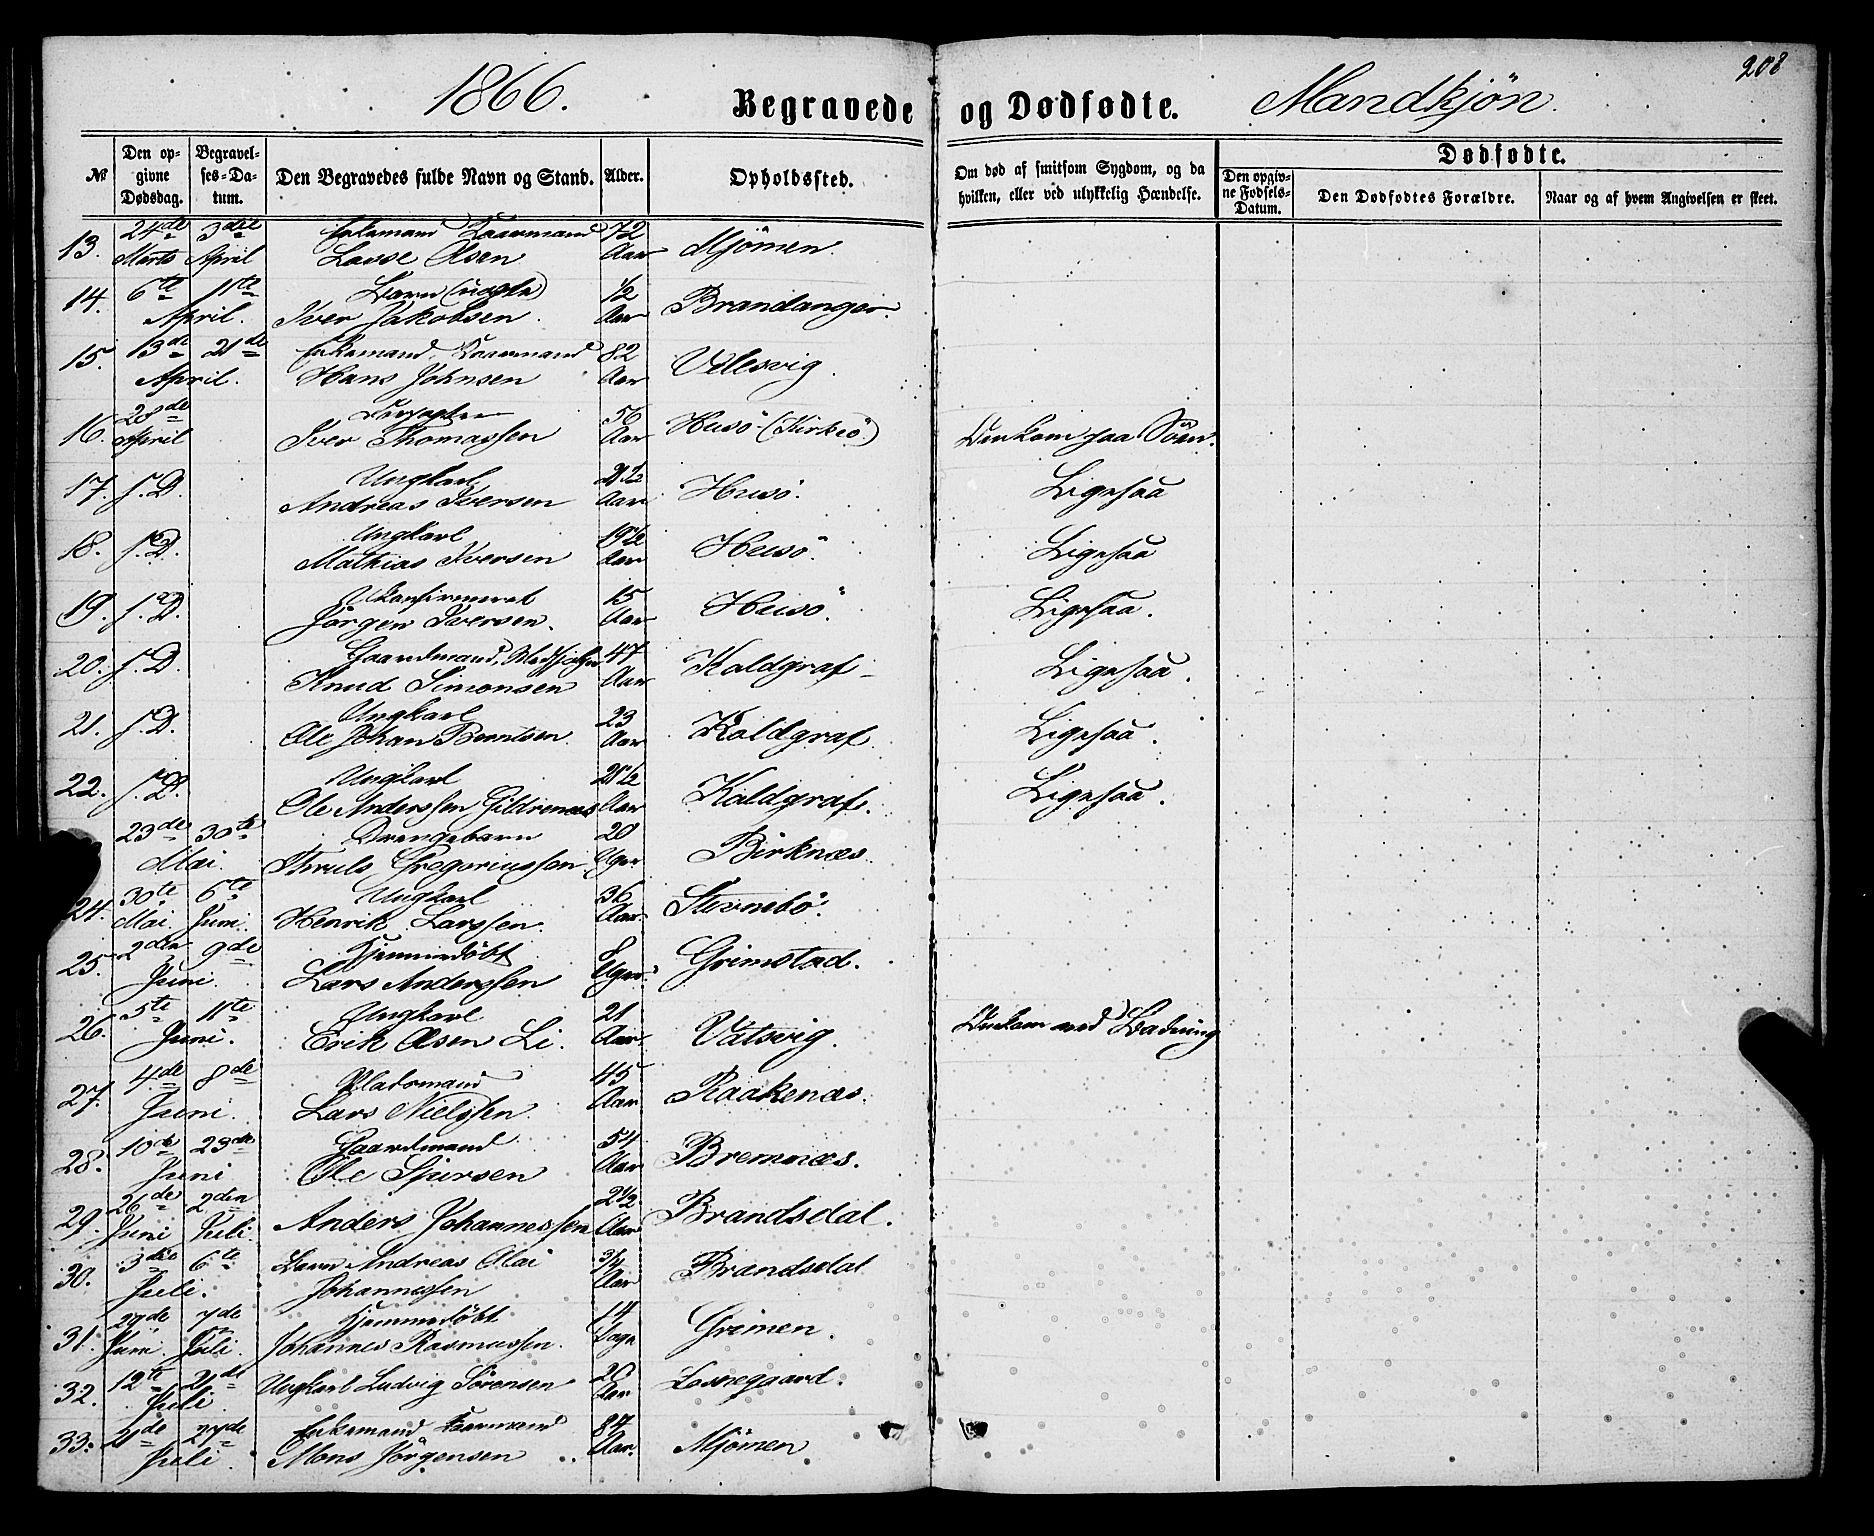 208
1866.
Begravede og Dødfødte. Mandkjön.
№
Den opgivne Dødsdag.
Begravelses-Datum.
Den Begravedes fulde Navn og Stand.
Alder.
Opholdssted.
Om død af smitsom Sygdom, og da hvilken, eller ved ulykkelig Hændelse.
Dødfødte.
Den opgivne Fødsels-Datum.
Den Dødfødtes Forældre.
Naar og af hvem Angivelsen er skeet.
13. 24de Marts 3die April Enkemand Kaarmand Lasse Olsen 72 Aar Mjömen.
14. 6te 11te April. Barn (uægte) Iver Jakobsen. 1/2 Aar Brandanger.
15. 13de 21de April. Enkemand, Kaarmand Hans Johnsen 82 Aar Vellesvig.
16. 28de April Iver Thomassen 56 Aar Husö (Kirkeö.) Omkom paa Söen.
17. s. D. Ungkarl Andreas Iversen 21 1/2 Aar Husö. Ligesaa
18. s. D. Ungkarl Mathias Iversen 19 1/2 Aar Husö. Ligesaa
19. s. D. Ukonfirmeret Jörgen Iversen. 15 Aar Husö. Ligesaa.
20. s. D. Gaardmand, Knud Simonsen 47 Aar Koldgraf Ligesaa.
21. s. D. Ungkarl Ole Johan Berntsen. 23 Aar Koldgraf. Ligesaa.
22. s. D. Ungkarl Ole Anderssen Gildrenæs 21 1/2 Aar Koldgraf. Ligesaa.
23de 30te Mai. Drengebarn Thruls Gregoriussen 20 Uger Birknæs.
24. 30te Mai 6te Juni. Ungkarl Henrik Larssen. 36 Aar. Stevnebö.
25. 2den 9de Juni. Hjemmedöbt Lars Anderssen 8 Uger Grimstad.
26. 5te 11te Juni. Ungkarl Erik Olsen Li. 21 Aar Vatsvig. Omkom ved Badning
27. 4de 8de Juni. Pladsmand Lars Nielssen 45 Aar Raakenæs.
28. 10de 23de Juni Gaardmand Ole Sjursen 54 Aar Bremnæs.
29. 26de Juni 2den Juli. Anders Johannessen 2 1/2 Aar Brandsdal.
30. 3die 6te Juli. Barn Andreas Olai Johannessen 3/4 Aar Brandsdal
31. 27de Juni. 7de Juli. Hjemmedöbt Johannes Rasmussen. 14 Dage Grimen.
32. 12te 21de Juli. Ungkarl Ludvig Sörensen 20 Aar Losnegaard.
33. 21de 27de Juli. Enkemand, Kaarmand Mons Jörgensen 84 Aar. Mjömen